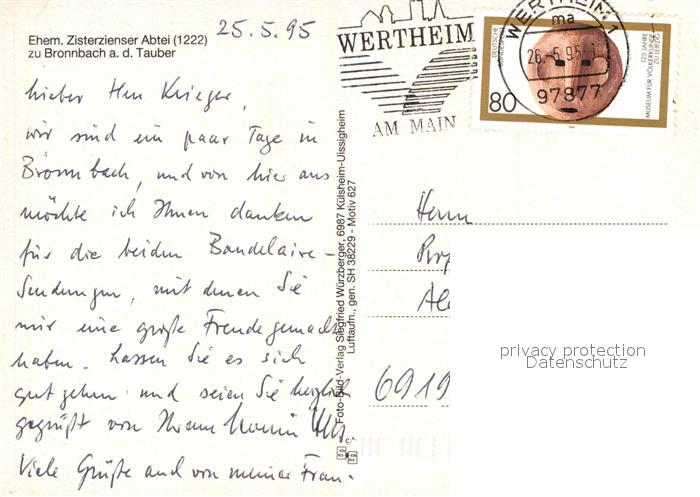 25.5.95
Ehem. Zisterzienser Abtei (1222)
zu Bronnbach a. d. Tauber
Lieber Herr Krieger,
wir sind ein paar Tage in
Bronnbach, und von hier aus
möchte ich Ihnen danken
für die beiden Baudelaire-
Sendungen, mit denen Sie
mir eine große Freude gemacht
haben. Lassen Sie es sich
gut gehen und seien Sie herzlich
gegrüßt von Ihrem
Viele Grüße auch von meiner Frau.
Foto-Bild-Verlag Siegfried Würzberger, 6987 Külsheim-Uissigheim
Luftaufn., gen. SH 38229 - Motiv 627
WERTHEIM
AM MAIN
WERTHEIM 1
ma
26.-5.95-1
97877
DEUTSCHE
80
125 JAHRE
MUSEUM FÜR VÖLKERKUNDE
ZU LEIPZIG
Herrn
6919
privacy protection
Datenschutz